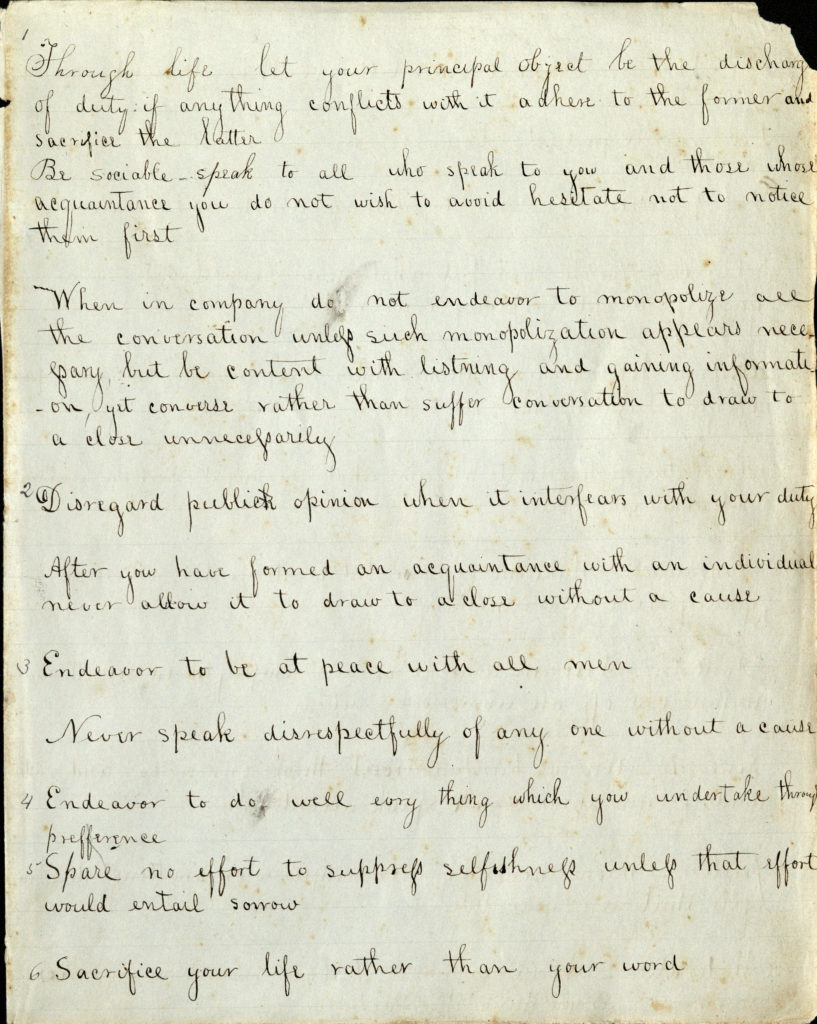 1
Through life let your principal object be the discharg
of duty: if anything conflicts with it adhere to the former and
sacrifice the latter
Be sociable - speak to all who speak to you and those whose
acquaintance you do not wish to avoid hesitate not to notice
them first
When in company do not endeavor to monopolize all
the conversation unless such monopolization appears nece-
ssary, but be content with listning and gaining informati
-on, yet converse rather than suffer conversation to draw to
a close unnecessarily
2 Disregard publick opinion when it interfears with your duty
After you have formed an acquaintance with an individual
never allow it to draw to a close without a cause
3 Endeavor to be at peace with all men
Never speak disrespectfully of any one without a cause
4 Endeavor to do well evry thing which you undertake through
prefference
5 Spare no effort to suppress selfishness unless that effort
would entail sorrow
6 Sacrifice your life rather than your word